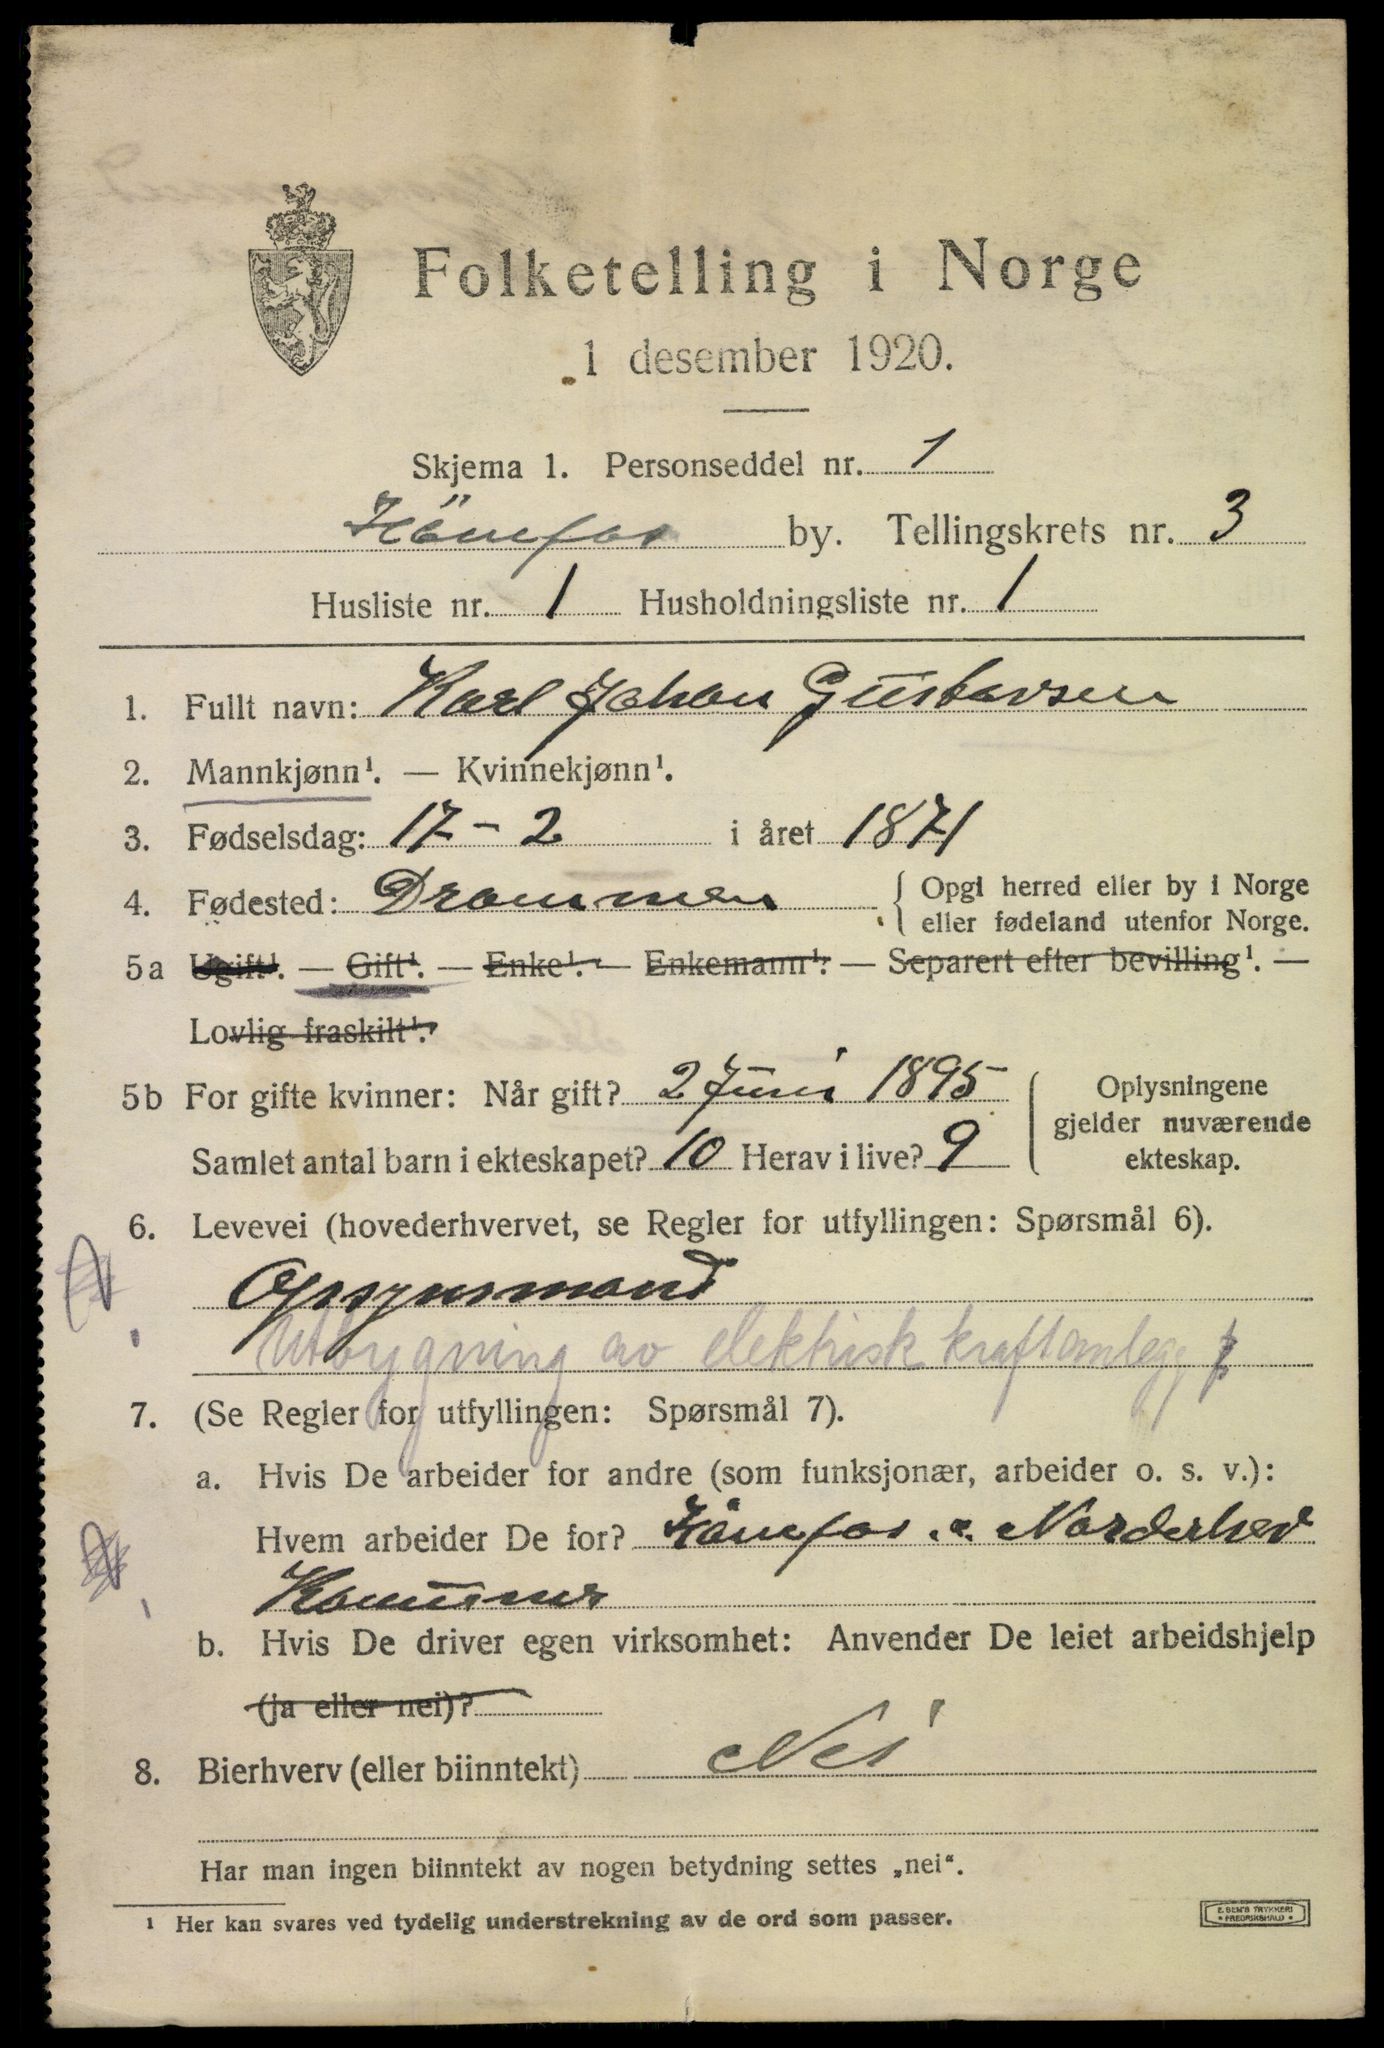 Folketelling i Norge
1 desember 1920.
Skjema 1. Personseddel nr. 1
Hönefos by. Tellingskrets nr. 3
Husliste nr. 1 Husholdningsliste nr. 1
1. Fullt navn: Karl Johan Gustavsen
2. Mannkjønn¹. — Kvinnekjønn¹.
3. Fødselsdag: 17-2 i året 1871
4. Fødested: Drammen { Opgi herred eller by i Norge
eller fødeland utenfor Norge.
5a Ugift¹. — Gift¹. — Enke¹. — Enkemann¹. — Separert efter bevilling¹. —
Lovlig fraskilt¹.
5b For gifte kvinner: Når gift? 2 Juni 1895 { Oplysningene
gjelder nuværende
Samlet antal barn i ekteskapet? 10 Herav i live? 9 ekteskap.
6. Levevei (hovederhvervet, se Regler for utfyllingen: Spørsmål 6).
Opsynsmand
Utbygning av elektrisk kraftanlegg
7. (Se Regler for utfyllingen: Spørsmål 7).
a. Hvis De arbeider for andre (som funksjonær, arbeider o. s. v.):
Hvem arbeider De for? Hönefos o. Norderhov
Komuner
b. Hvis De driver egen virksomhet: Anvender De leiet arbeidshjelp
(ja eller nei)?
8. Bierhverv (eller biinntekt) Nei
Har man ingen biinntekt av nogen betydning settes „nei“.
¹ Her kan svares ved tydelig understrekning av de ord som passer.
E. SEM'S TRYKKERI
• FREDRIKSHALD •